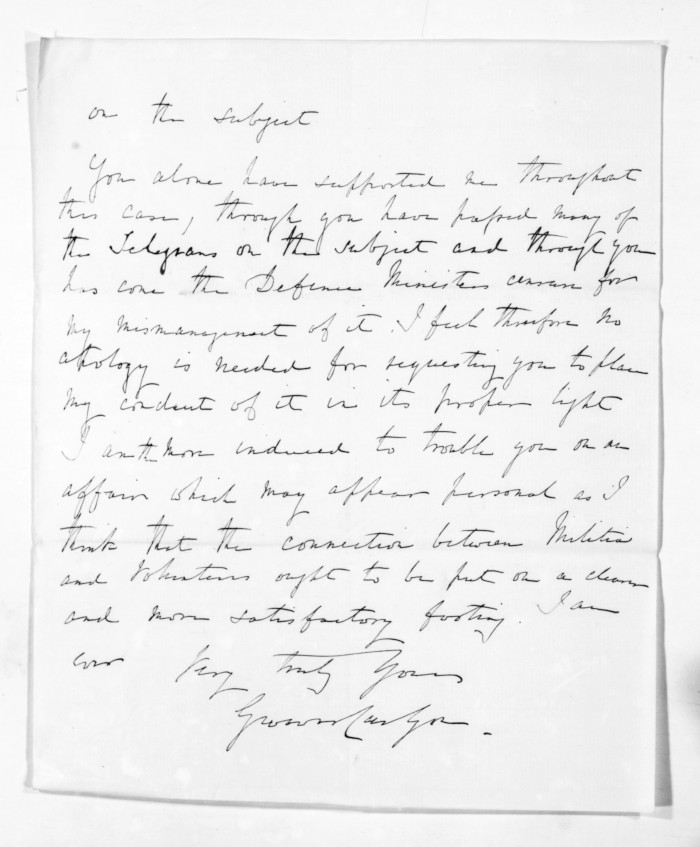 on the subject
You alone have supported me throughout
this case, through you have passed many of
the Telegrams on the subject and through you
has come the Defence Ministers censure for
my mismanagement of it. I feel therefore no
apology is needed for requesting you to place
my conduct of it in its proper light
I am the more induced to trouble you on an
affair which may appear personal as I
think that the connection between Militia
and Volunteers ought to be put on a clearer
and more satisfactory footing. I am
ever Very truly Yours